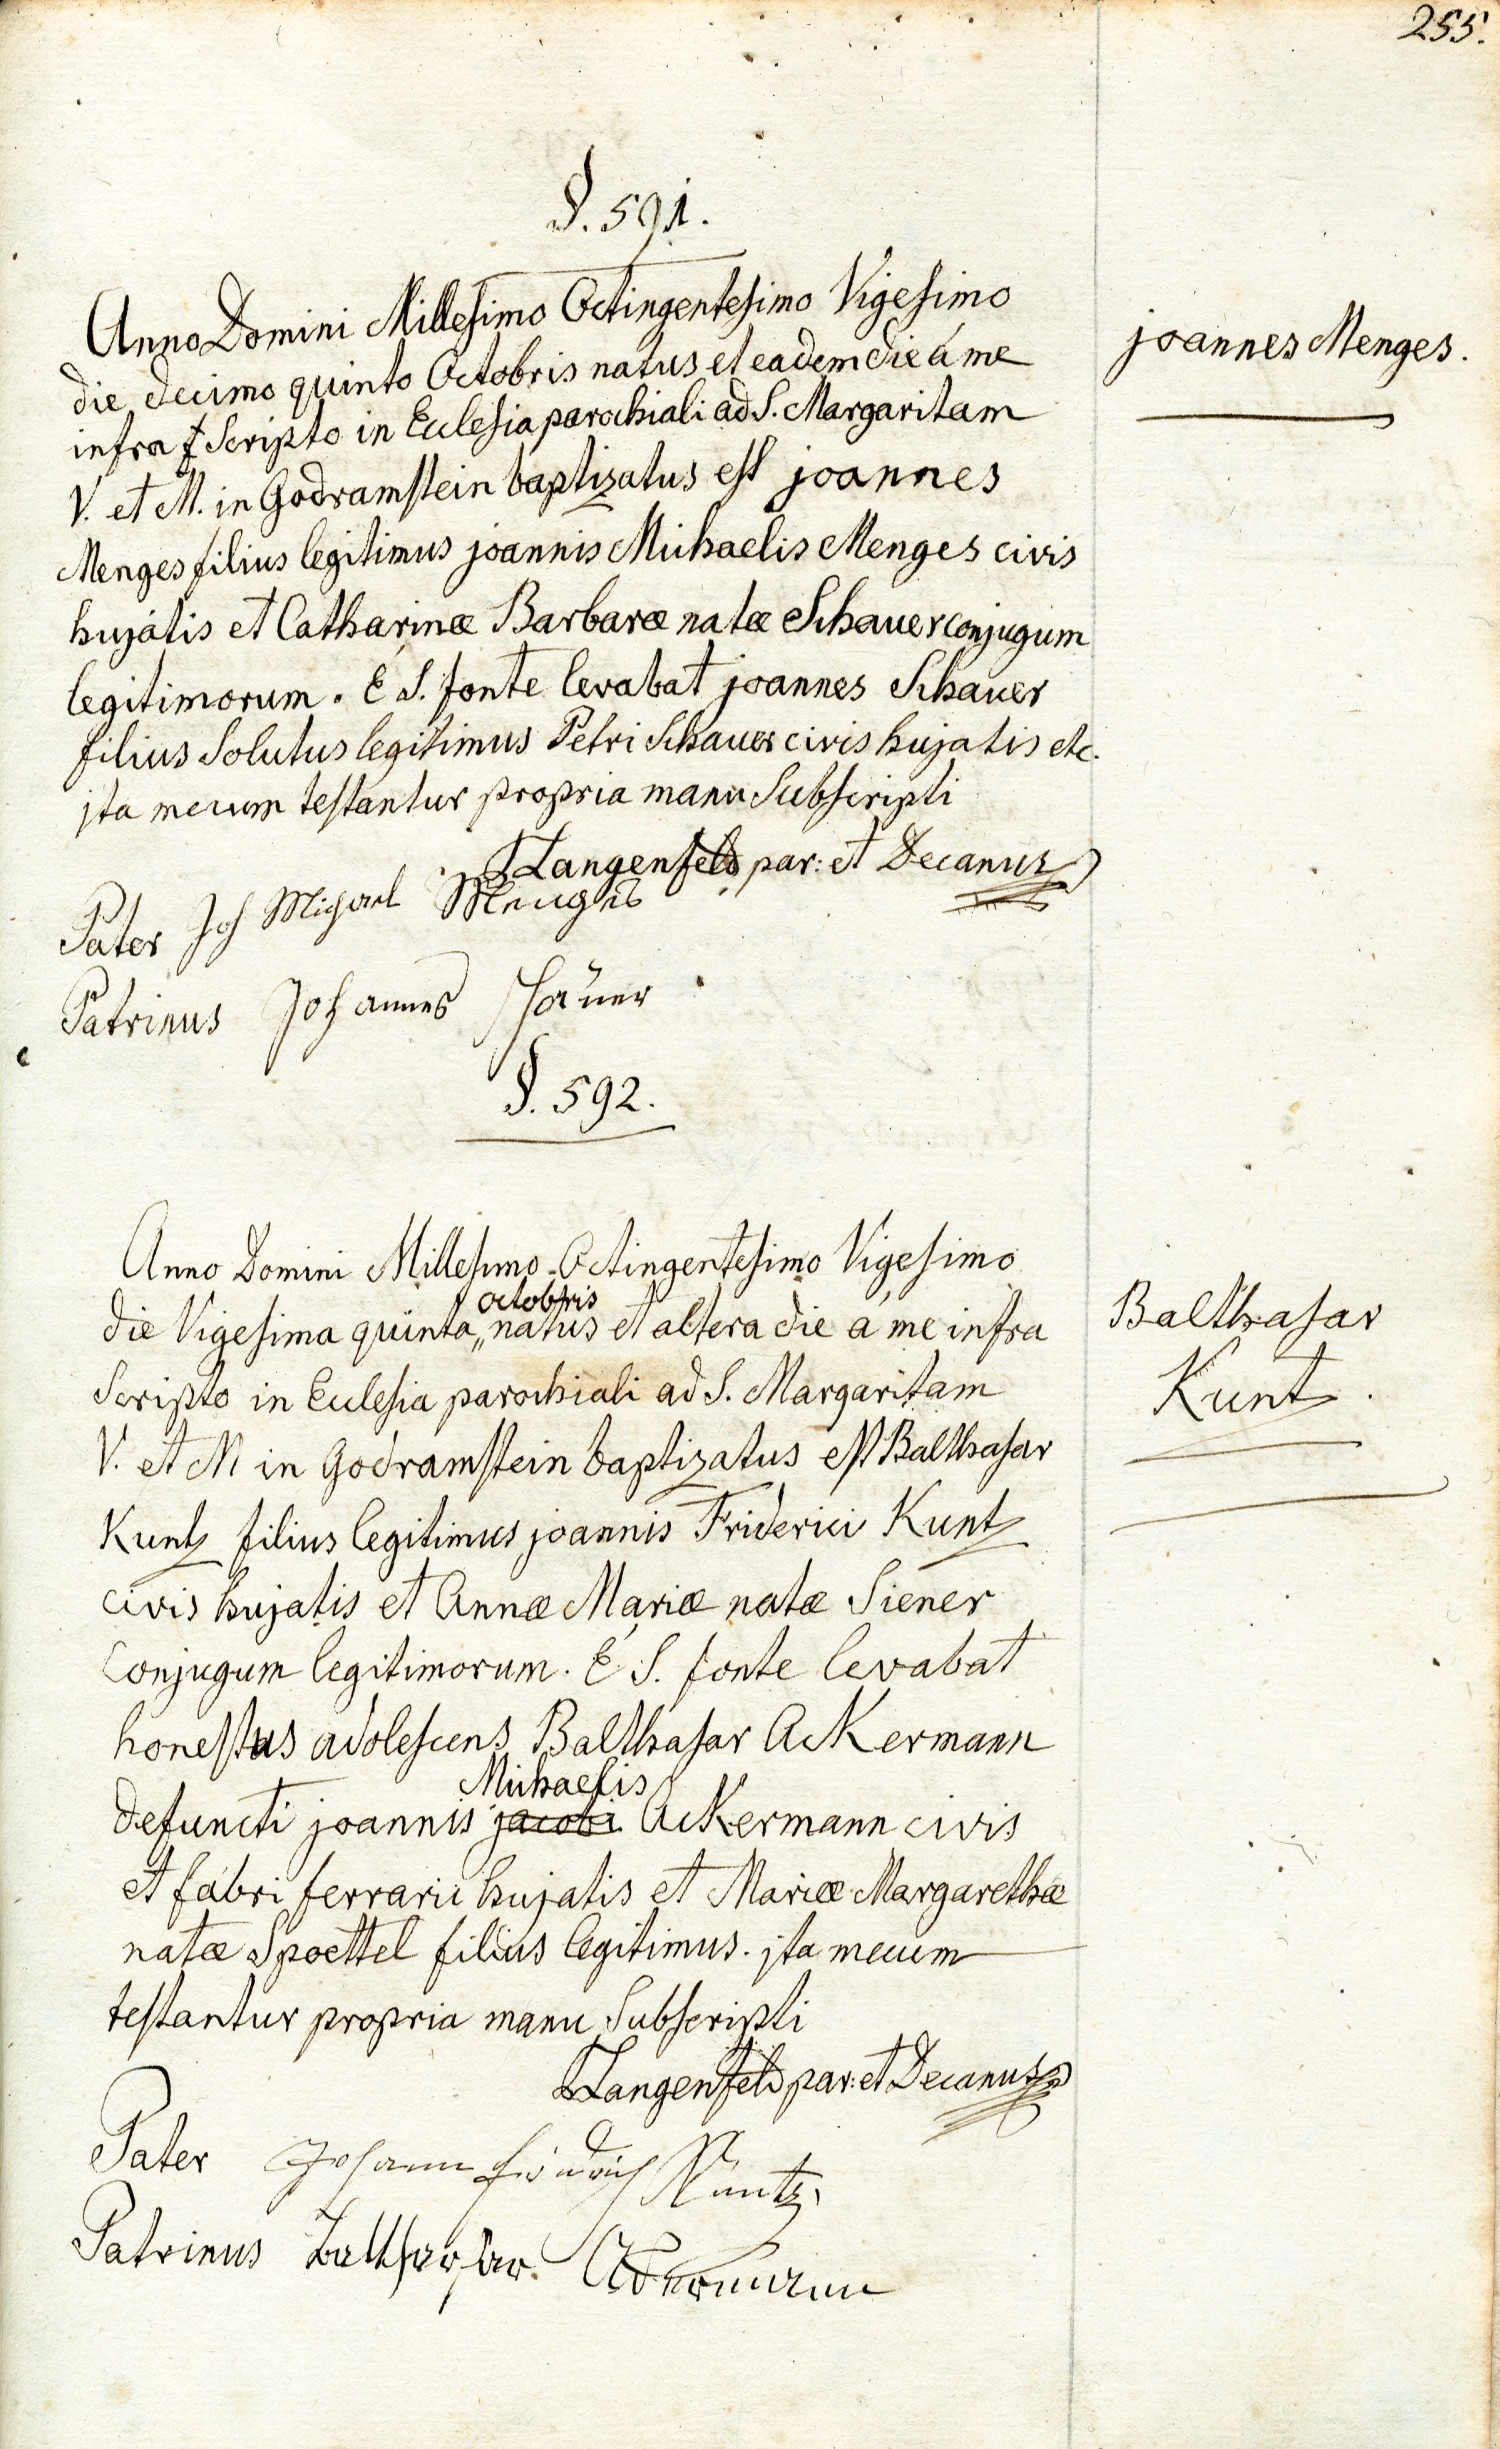 255.
§. 591.
Anno Domini Millesimo Octingentesimo Vigesimo
die decimo quinto Octobris natus et eadem die á me
infra Scripto in Ecclesia parochiali ad S. Margaritam
V. et M. in Godramstein baptizatus est joannes
Menges filius legitimus joannis Michaelis Menges civis
hujatis et Catharinæ Barbaræ natæ Schauer conjugum
legitimorum. É S. fonte levabat joannes Schauer
filius Solutus legitimus Petri Schauer civis hujatis etc.
jta mecum testantur propria manu Subscripti
Langenfeld par: et Decanus
Pater Joh Michael Menges
Patrinus Johannes Schauer
joannes Menges.
§. 592.
Anno Domini Millesimo Octingentesimo Vigesimo
octobris
die Vigesima quinta „ natus et altera die á me infra
Scripto in Ecclesia parochiali ad S. Margaritam
V. et M in Godramstein baptizatus est Balthasar
Kuntz filius legitimus joannis Friderici Kuntz
civis hujatis et Annæ Mariæ natæ Siener
Conjugum legitimorum. É S. fonte levabat
honestus adolescens Balthasar Ackermann
Michaelis
defuncti joannis jacobi Ackermann civis
et fabri ferrarii hujatis et Mariæ Margarethæ
natæ Spoettel filius legitimus. jta mecum
testantur propria manu Subscripti
Langenfeld par: et Decanus
Pater Johann Friedrich Kuntz
Patrinus Balthasar Ackermann
Balthasar
Kuntz.